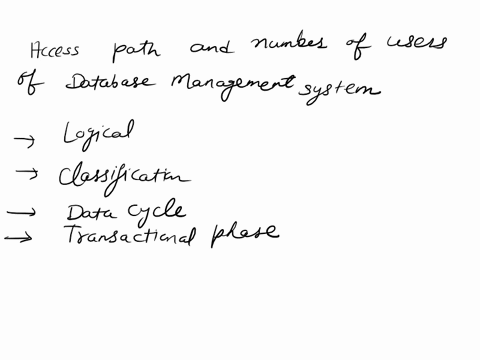 Access path and number of users
of Database Management system
→ Logical
→ Classification
→ Data cycle
→ Transactional phase